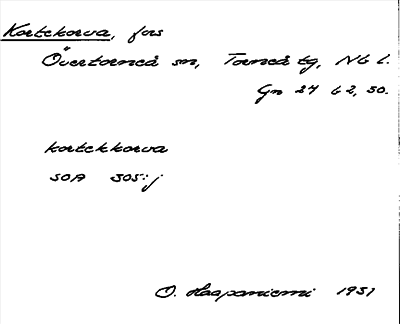 Kortekorva, fors
Övertorneå sn, Torneå tg, Nb l.
Gn 24 62, 50.
kortekkorva
SOA 305:j
O. Haapaniemi 1931